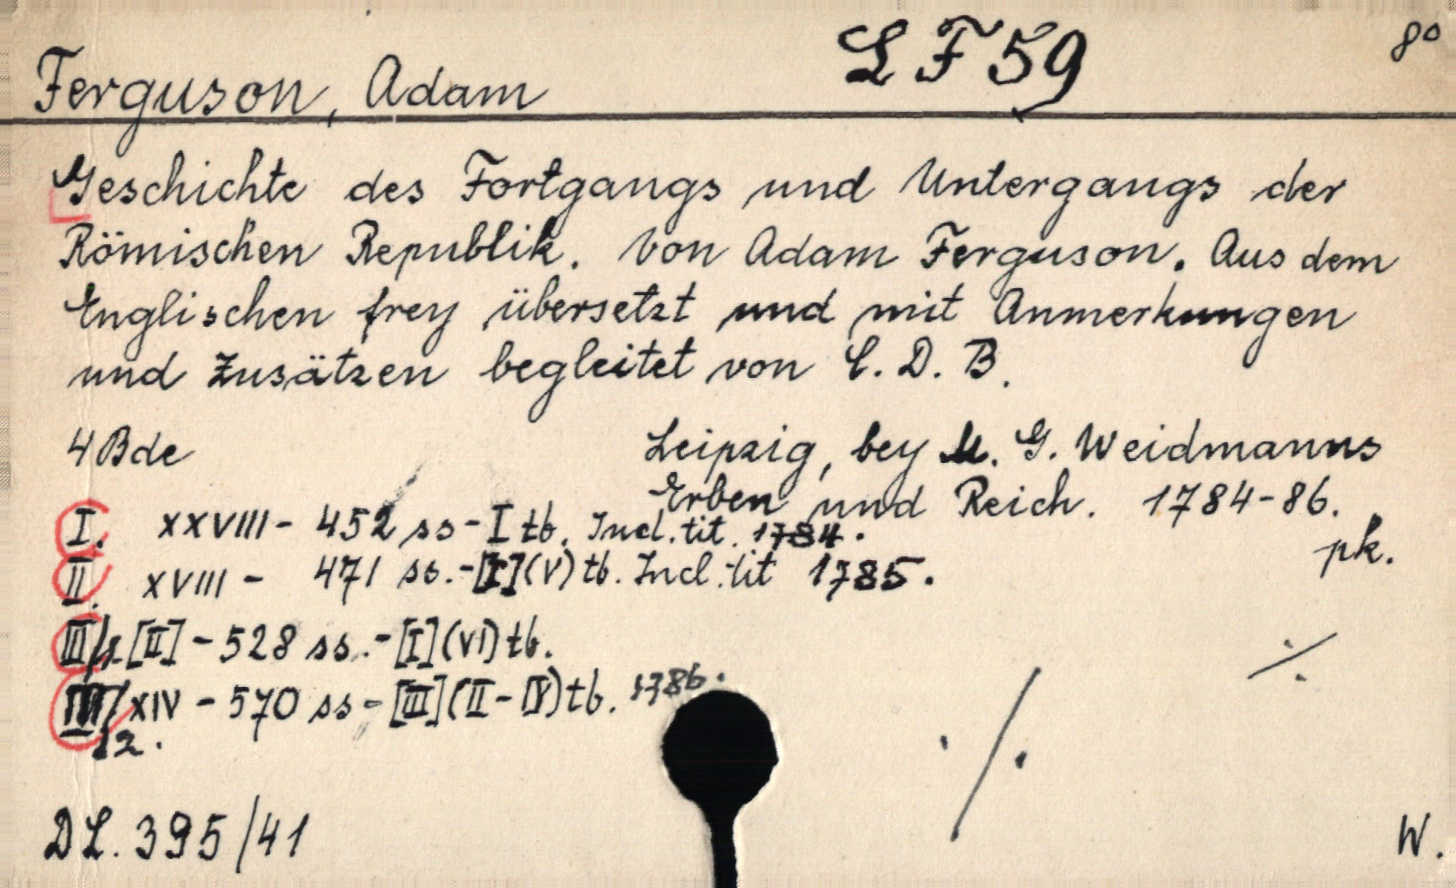 LF 59
8°
Ferguson, Adam
Geschichte des Fortgangs und Untergangs der
Römischen Republik. Von Adam Ferguson. Aus dem
Englischen frey übersetzt und mit Anmerkungen
und Zusätzen begleitet von C. D. B.
4 Bde
Leipzig, bey M. G. Weidmanns
Erben und Reich. 1784-86.
I. XXVIII - 452 ss - I tb. Incl. tit. 1784.
pk.
II. XVIII - 471 ss. - [I] (V) tb. Incl. tit 1785.
III/1 [II] - 528 ss. - [I] (VI) tb.
III/2. XIV - 570 ss - [III] (II - IV) tb. 1786.
·/·
·/·
DL. 395/41
W.